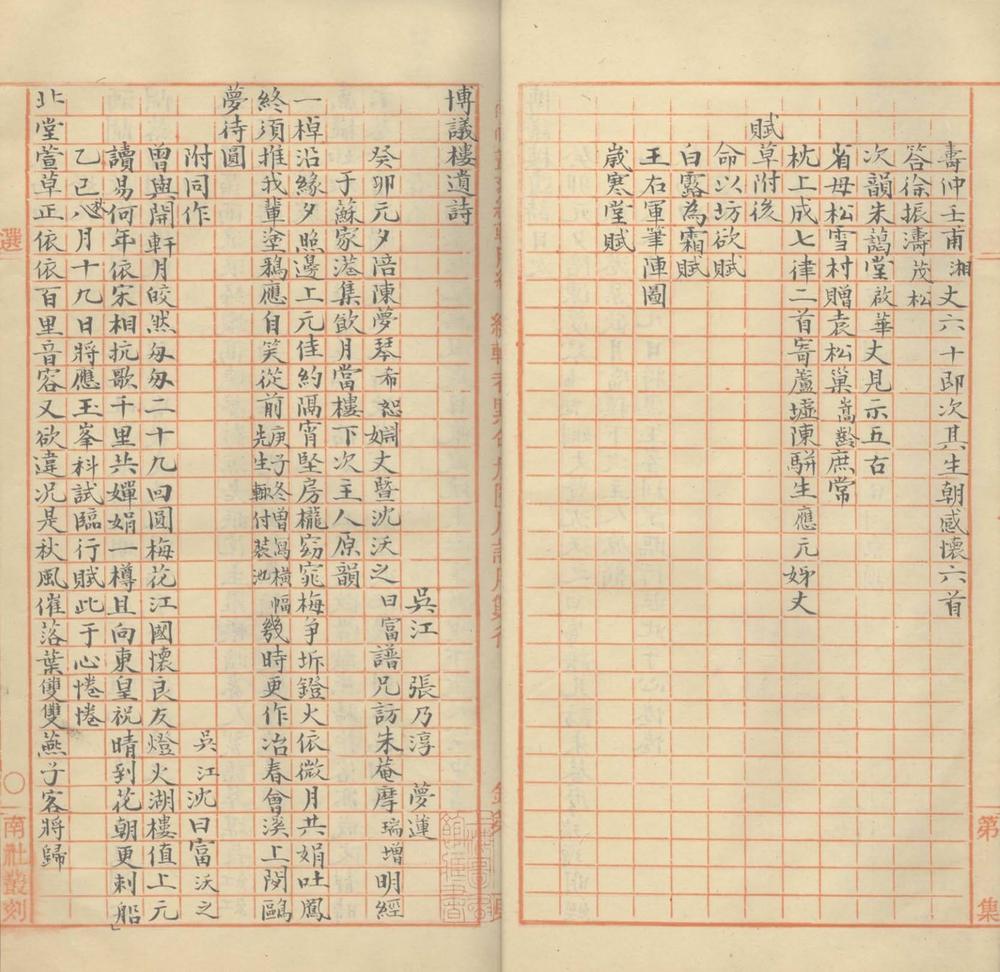 壽仲壬甫湘丈六十即次其生朝感懷六首
答徐振濤茂松
次韻朱藹堂啟華丈見示五古
省母松雪村贈袁松巢嵩齡庶常
枕上成七律二首寄蘆墟陳駢生應元姊丈
賦
草附後
命以坊欲賦
白露為霜賦
王右軍筆陣圖
歲寒堂賦
第 集
博議樓遺詩
吳江 張乃淳 夢蓮
癸卯元夕陪陳夢琴希恕姻丈暨沈沃之日富譜兄訪朱菴摩瑞增明經
于蘇家港集飲月當樓下次主人原韻
一棹沿緣夕照邊上元佳約隔宵堅房櫳窈窕梅争坼鐙火依微月共娟吐鳳
終須推我輩塗鴉應自笑從前庚子冬曾寫橫幅先生輒付裝池幾時更作冶春會溪上閔鷗
夢待圓
附同作
吳江沈日富沃之
曾與開軒月皎然匆匆二十九回圓梅花江國懷良友燈火湖樓值上元
讀易何年依宋相抗歌千里共嬋娟一樽且向東皇祝晴到花朝更刺船
乙巳八月十九日將應玉峯科試臨行賦此于心惓惓
北堂萱草正依依百里音容又欲違況是秋風催落葉雙雙燕子客將歸
選 〇 南社叢刻